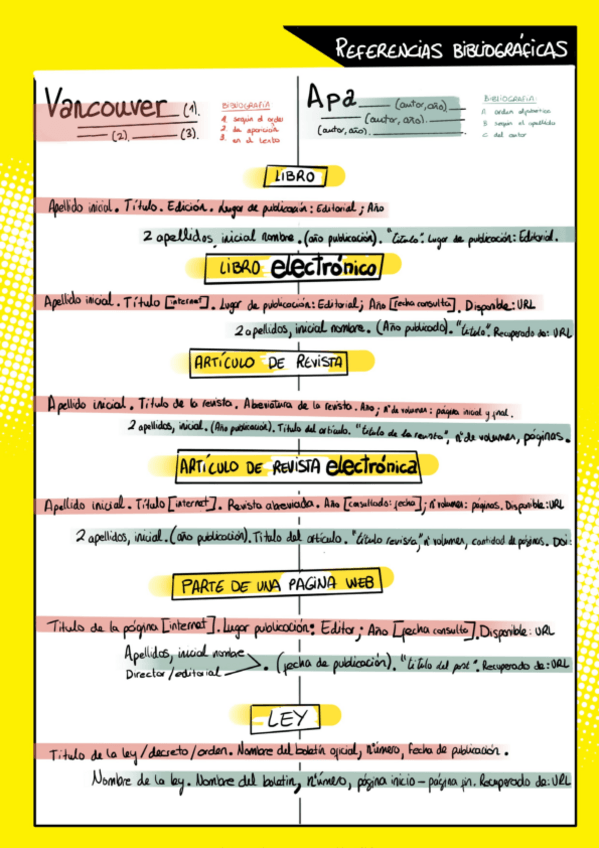 REFERENCIAS BIBLIOGRÁFICAS
Vancouver ____ (1).
____ (2). ____ (3).
BIBLIOGRAFÍA
1 según el orden
2 de aparición
3 en el texto
Apa ____ (autor, año).
____ (autor, año). ____
(autor, año). ____
BIBLIOGRAFIA:
A orden alfabético
B según el apellido
C del autor
LIBRO
Apellido inicial. Título. Edición. Lugar de publicación: Editorial; Año
2 apellidos, inicial nombre. (año publicación). "título". Lugar de publicación: Editorial.
LIBRO electrónico
Apellido inicial. Título [internet]. Lugar de publicación: Editorial; Año [fecha consulta]. Disponible: URL
2 apellidos, inicial nombre. (Año publicado). "título". Recuperado de: URL
ARTÍCULO DE REVISTA
Apellido inicial. Título de la revista. Abreviatura de la revista. Año; nº de volumen: página inicial y final.
2 apellidos, inicial. (Año publicación). Título del artículo. "título de la revista", nº de volumen, páginas.
ARTÍCULO DE REVISTA electrónica
Apellido inicial. Título [internet]. Revista abreviada. Año [consultado: fecha]; nº volumen: páginas. Disponible: URL
2 apellidos, inicial. (año publicación). Título del artículo. "título revista", nº volumen, cantidad de páginas. Doi:
PARTE DE UNA PAGINA WEB
Título de la página [internet]. Lugar publicación: Editor; Año [fecha consulta]. Disponible: URL
Apellidos, inicial nombre
Director/editorial
. (fecha de publicación). "título del post". Recuperado de: URL
LEY
Título de la ley/decreto/orden. Nombre del boletín oficial, número, fecha de publicación.
Nombre de la ley. Nombre del boletín, número, página inicio - página fin. Recuperado de: URL